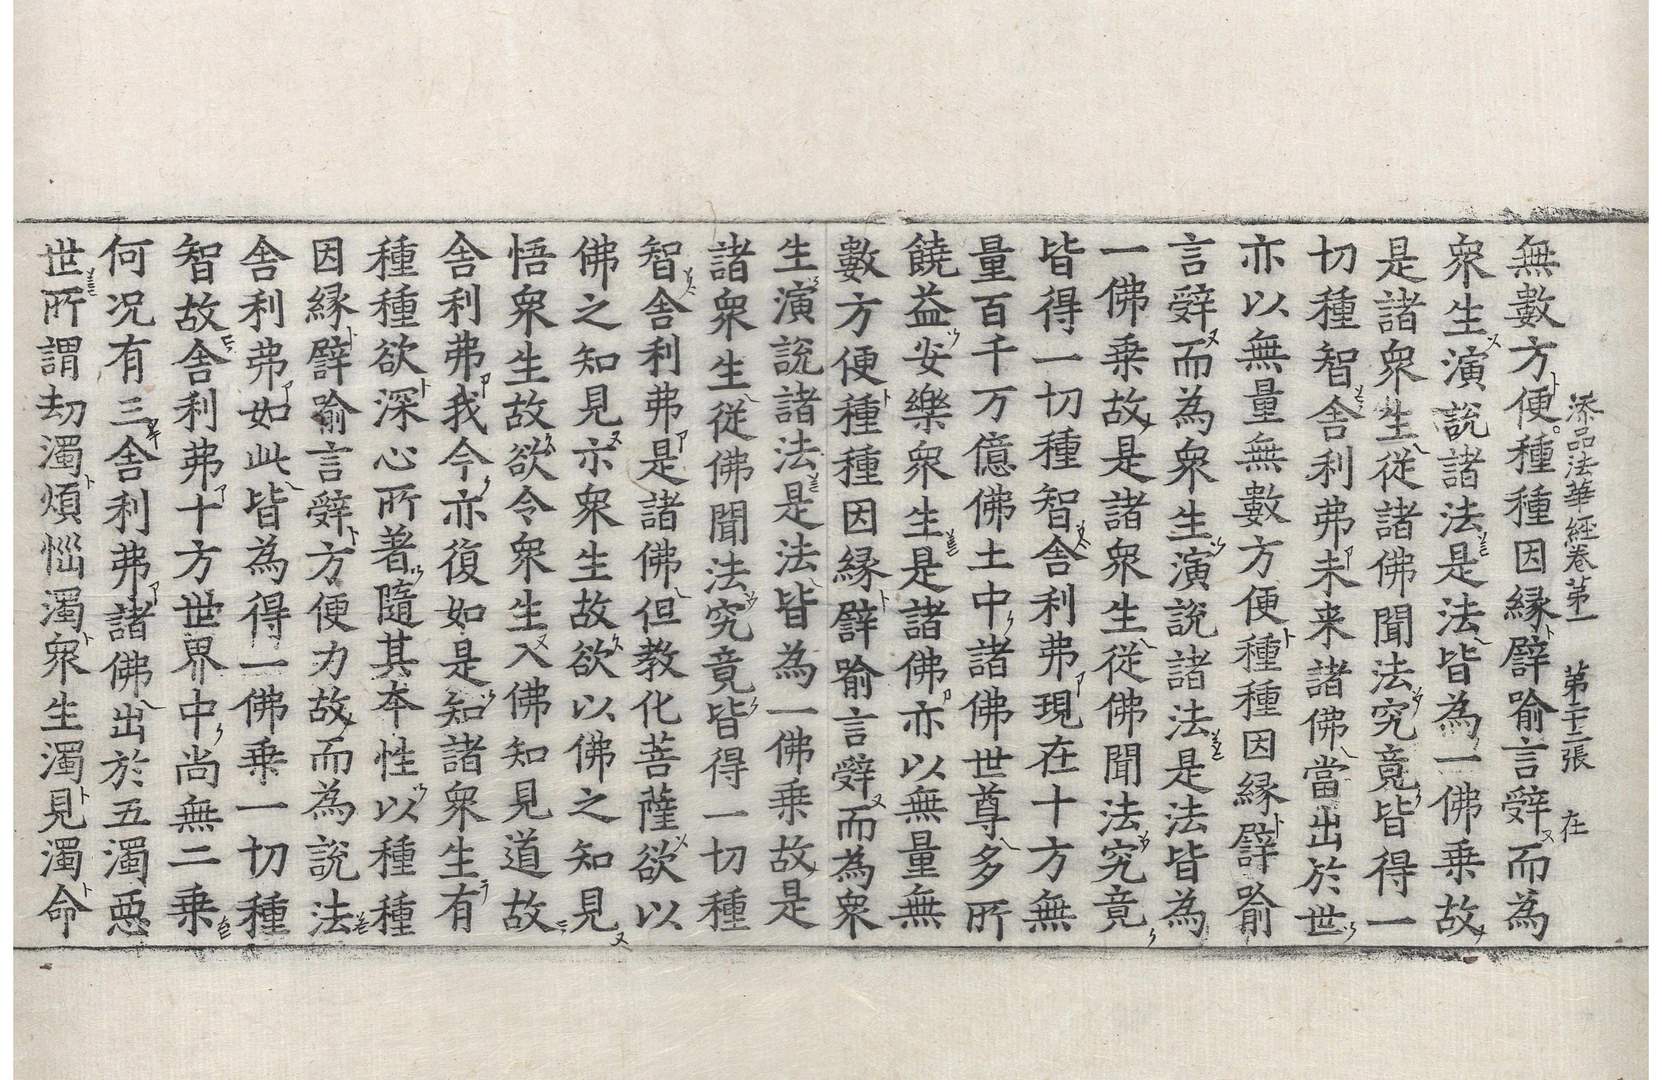 添品法華經卷第一　第二十三張　在
無數方便種種因緣譬喻言辭而為
眾生演說諸法是法皆為一佛乘故
是諸眾生從諸佛聞法究竟皆得一
切種智舍利弗未来諸佛當出於世
亦以無量無數方便種種因緣譬喻
言辭而為眾生演說諸法是法皆為
一佛乘故是諸眾生從佛聞法究竟
皆得一切種智舍利弗現在十方無
量百千万億佛土中諸佛世尊多所
饒益安樂眾生是諸佛亦以無量無
數方便種種因緣譬喻言辭而為眾
生演說諸法是法皆為一佛乘故是
諸眾生從佛聞法究竟皆得一切種
智舍利弗是諸佛但教化菩薩欲以
佛之知見示眾生故欲以佛之知見
悟眾生故欲令眾生入佛知見道故
舍利弗我今亦復如是知諸眾生有
種種欲深心所著隨其本性以種種
因緣譬喻言辭方便力故而為說法
舍利弗如此皆為得一佛乘一切種
智故舍利弗十方世界中尚無二乘
何况有三舍利弗諸佛出於五濁惡
世所謂劫濁煩惱濁眾生濁見濁命